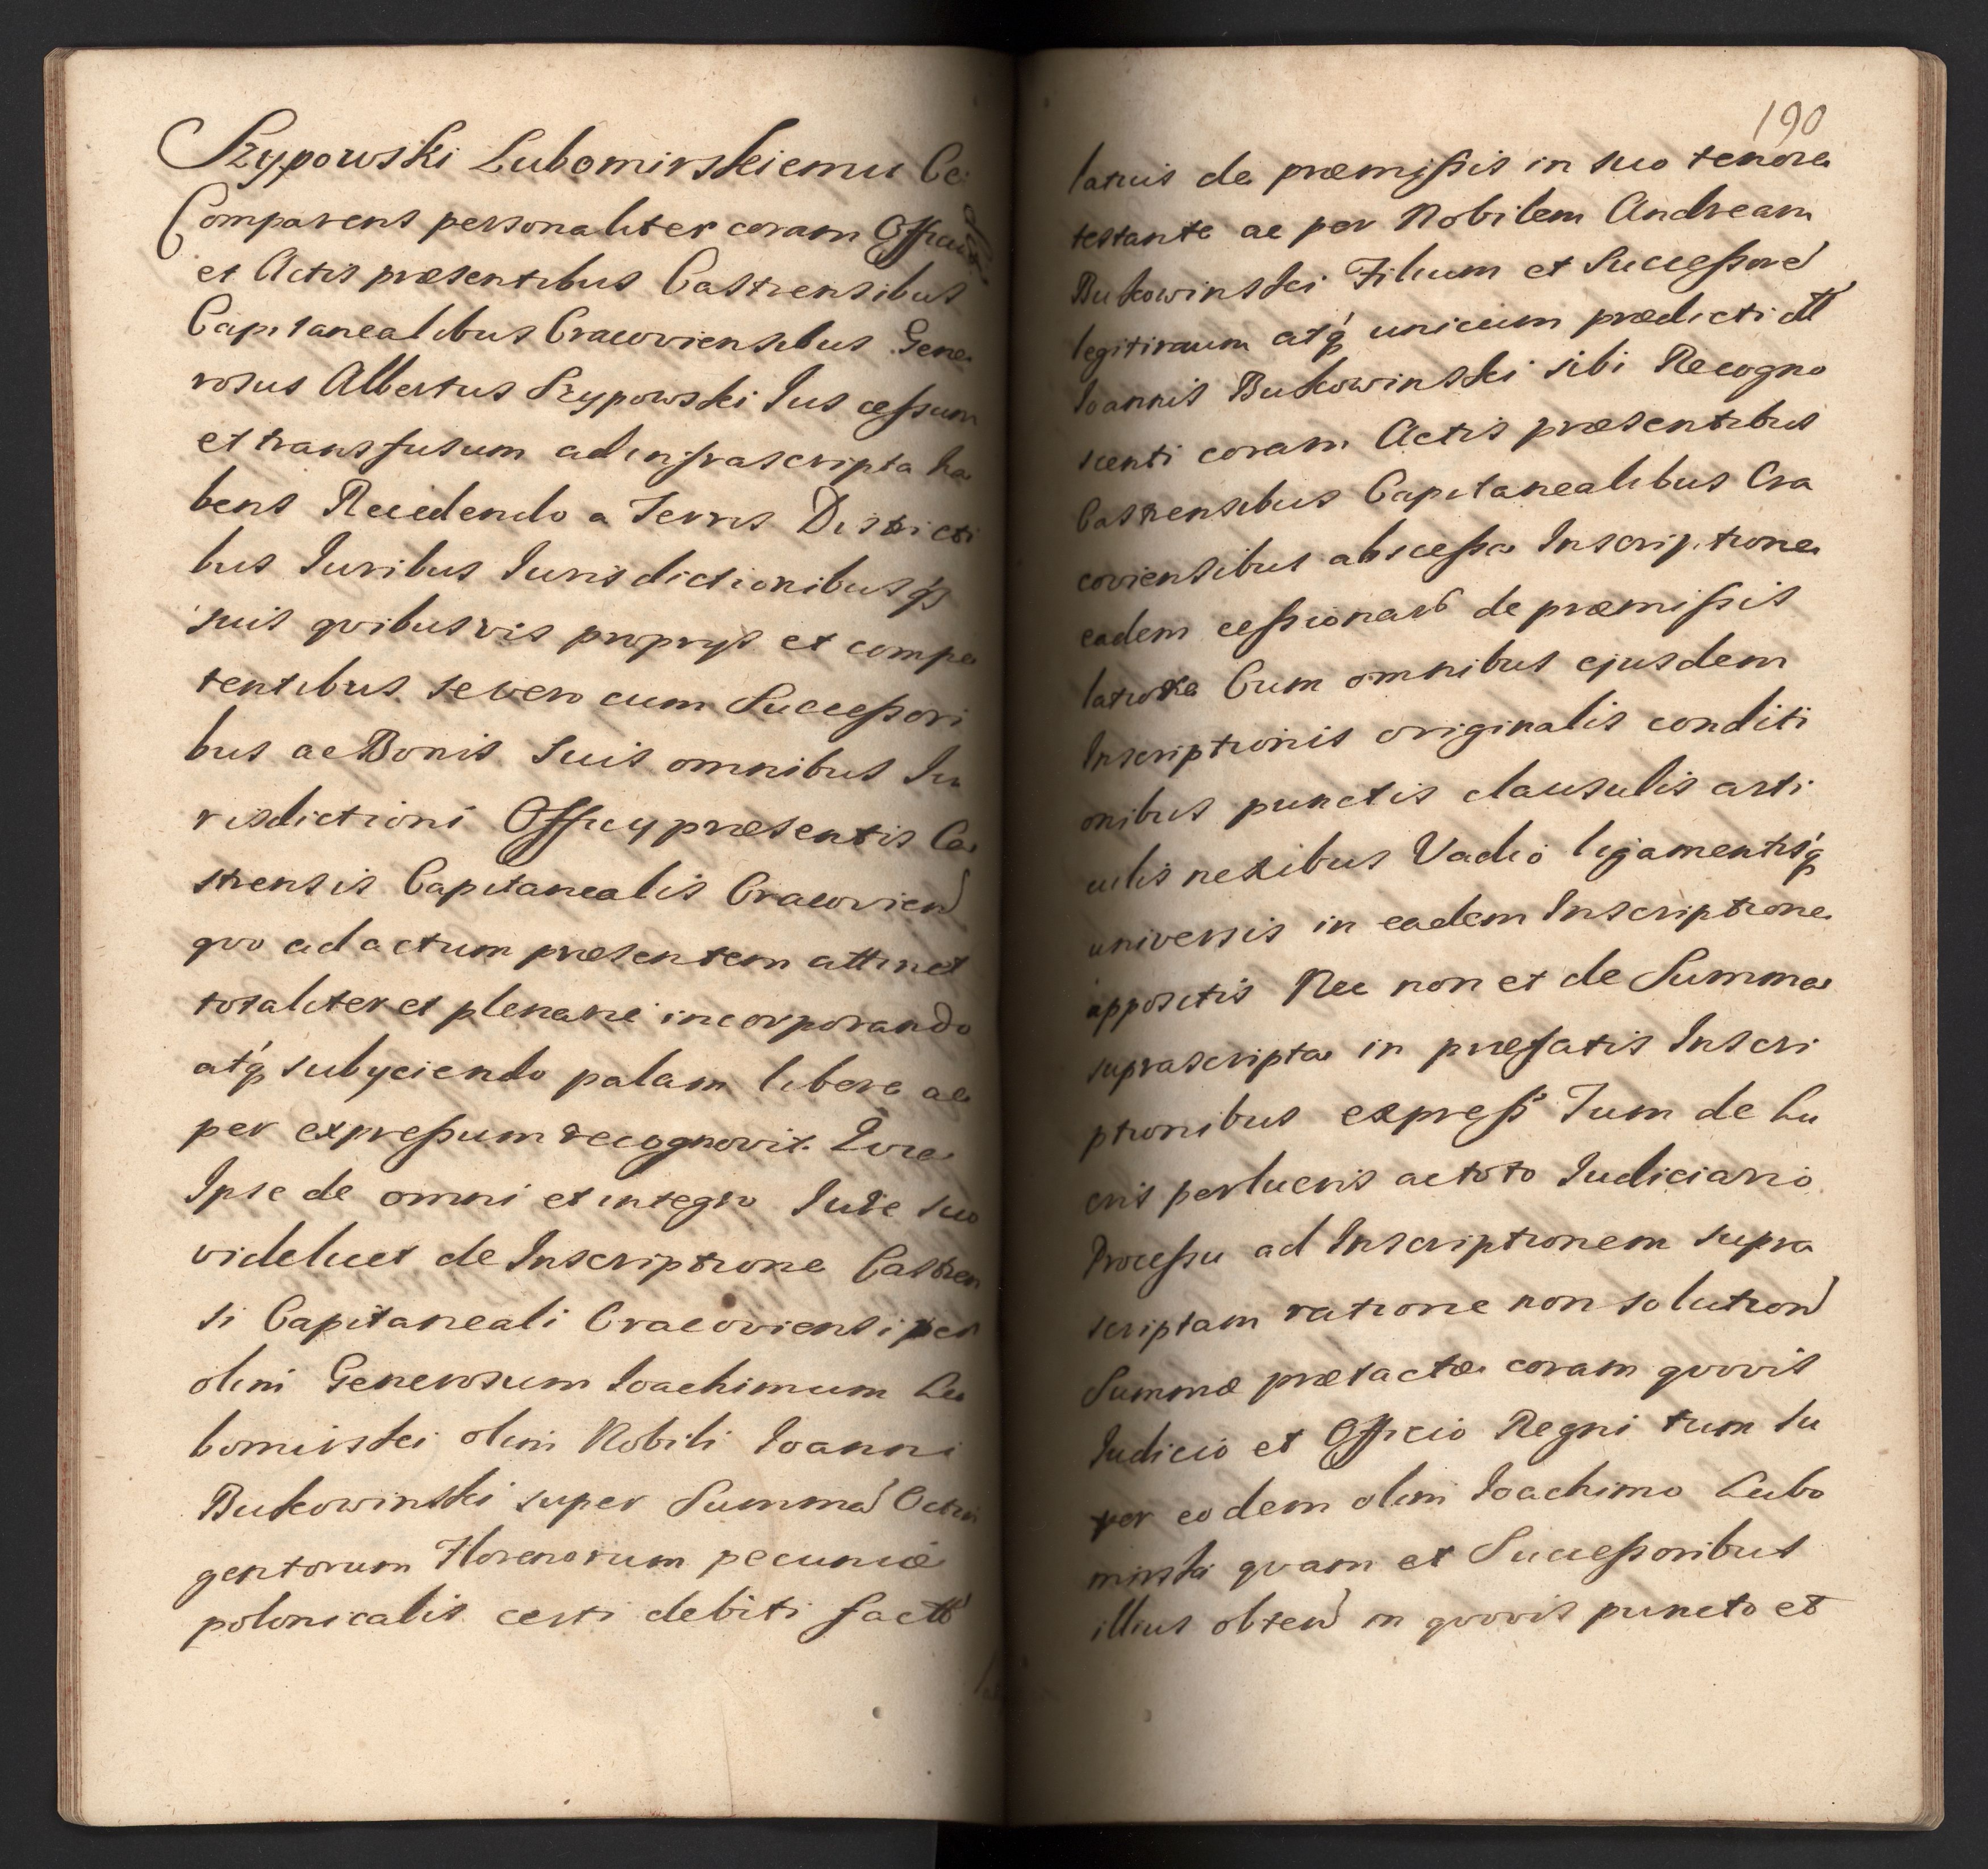 Szypowski Lubomirskiemu Ce
Comparens personaliter coram Officio
et Actis præsentibus Castrensibus
Capitanealibus Cracoviensibus Gene
rosus Albertus Szypowski Jus cessum
et transfusum ad infrascripta ha
bens Recedendo a Terris Districti
bus Iuribus Iurisdictionibusq́
suis qvibusvis proprys et compe
tentibus se vero cum Successori
bus ac Bonis suis omnibus Iu
risdictioni Officy præsentis Ca
strensis Capitanealis Cracovien
qvo ad actum præsentem attinet
totaliter et plenarie incorporando
atq́ subyciendo palam libere ac
per expressum recognovit. Qvia
Ipse de omni et integro Iure suo
videlicet de Inscriptione Castren
si Capitaneali Cracoviensi per
olim Generosum Ioachimum Lu
bomirski olim Nobili Ioanni
Bukowinski super Summa Octin
gentorum Florenorum pecuniæ
polonicalis certi debiti fact
190
latius de præmissis in suo tenore
testante ac per Nobilem Andream
Bukowinski Filium et Successore
legitimum atq́ unicum prædicti olt
Ioannis Bukowinski sibi Recogno
scenti coram Actis præsentibus
Castrensibus Capitanealibus Cra
coviensibus abscessa Inscriptione
eadem cessionar de præmissis
latiore Cum omnibus ejusdem
Inscriptionis originalis conditi
onibus punctis clausulis arti
culis nexibus Vadio ligamentisq́
universis in eadem Inscriptione
appositis Nec non et de Summa
suprascripta in præfatis Inscri
ptionibus express Tum de Lu
cris perlucris ac toto Iudiciario
Processu ad Inscriptionem supra
scriptam ratione non solution
Summæ prætactæ coram qvovis
Iudicio et Officio Regni tum su
per eodem olim Ioachimo Lubo
mirski qvam et Successoribus
illius obten in qvovis puncto et